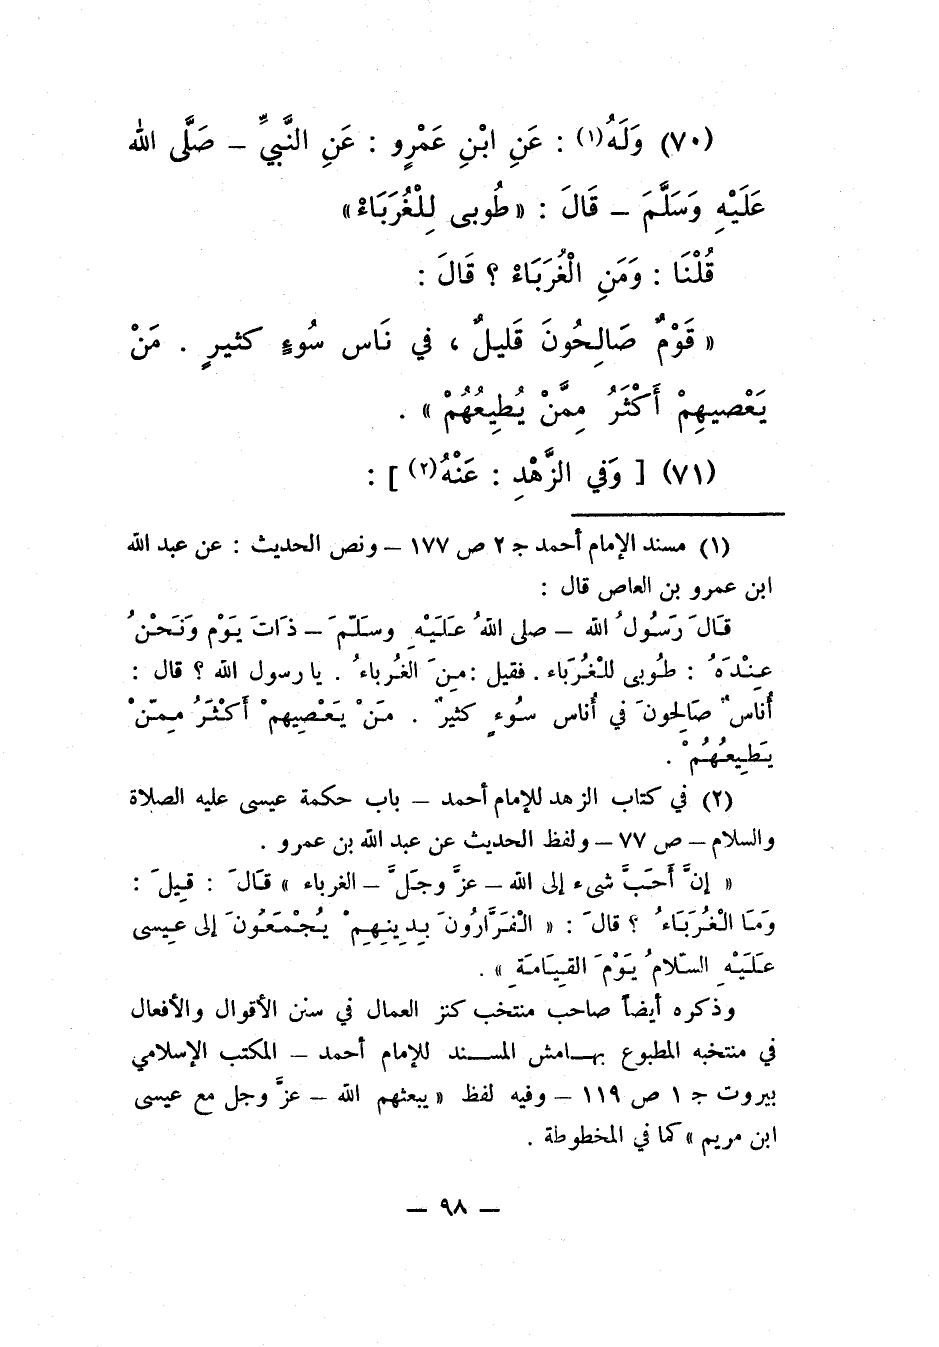 (٧٠) وَلَهُ(١) : عَنِ ابْنِ عَمْرٍو : عَنِ النَّبِيِّ – صَلَّى الله
عَلَيْهِ وَسَلَّمَ – قَالَ : « طُوبى لِلْغُرَبَاءْ »
قُلْنَا : وَمَنِ الْغُرَبَاءْ ؟ قَالَ :
« قَوْمٌ صَالِحُونَ قَليلٌ ، في نَاس سُوءٍ كثيرٍ . مَنْ
يَعْصيهِمْ أَكْثَرُ مِمَّنْ يُطِيعُهُمْ » .
(٧١) [ وَفي الزَّهْدِ : عَنْهُ(٢) ] :
(١) مسند الإمام أحمد جـ ٢ ص ١٧٧ – ونص الحديث : عن عبد الله
ابن عمرو بن العاص قال :
قَالَ رَسُولُ الله – صلى اللهُ عَلَيْهِ وسَلَّمَ – ذَاتَ يَوْم وَنَحْنُ
عِنْدَهُ : طُوبى للْغُرَبَاء . فقيل : مِنَ الغُرباءُ . يا رسول الله ؟ قال :
أُناسٌ صَالِحُونَ في أُناس سُوءٍ كثيرٌ . مَنْ يَعْصِيهمْ أَكْثَرُ مِمّنْ
يَطِيعُهُمْ .
(٢) في كتاب الزهد للإمام أحمد – باب حكمة عيسى عليه الصلاة
والسلام – ص ٧٧ – ولفظ الحديث عن عبد الله بن عمرو .
« إنَّ أَحَبَّ شيء إلى الله – عزَّ وجَلَّ – الغرباء » قَالَ : قيلَ :
وَمَا الْغُرَبَاءُ ؟ قالَ : « الْفَرَّارُونَ بِدِينِهِمْ يُجْمَعُونَ إلى عيسى
عَلَيْهِ السّلامُ يَوْمَ القِيَامَةِ » .
وذكره أيضاً صاحب منتخب كنز العمال في سنن الأقوال والأفعال
في منتخبه المطبوع بهامش المسند للإمام أحمد – المكتب الإسلامي
بيروت جـ ١ ص ١١٩ – وفيه لفظ « يبعثهم الله – عزَّ وجل مع عيسى
ابن مريم » كما في المخطوطة .
– ٩٨ –